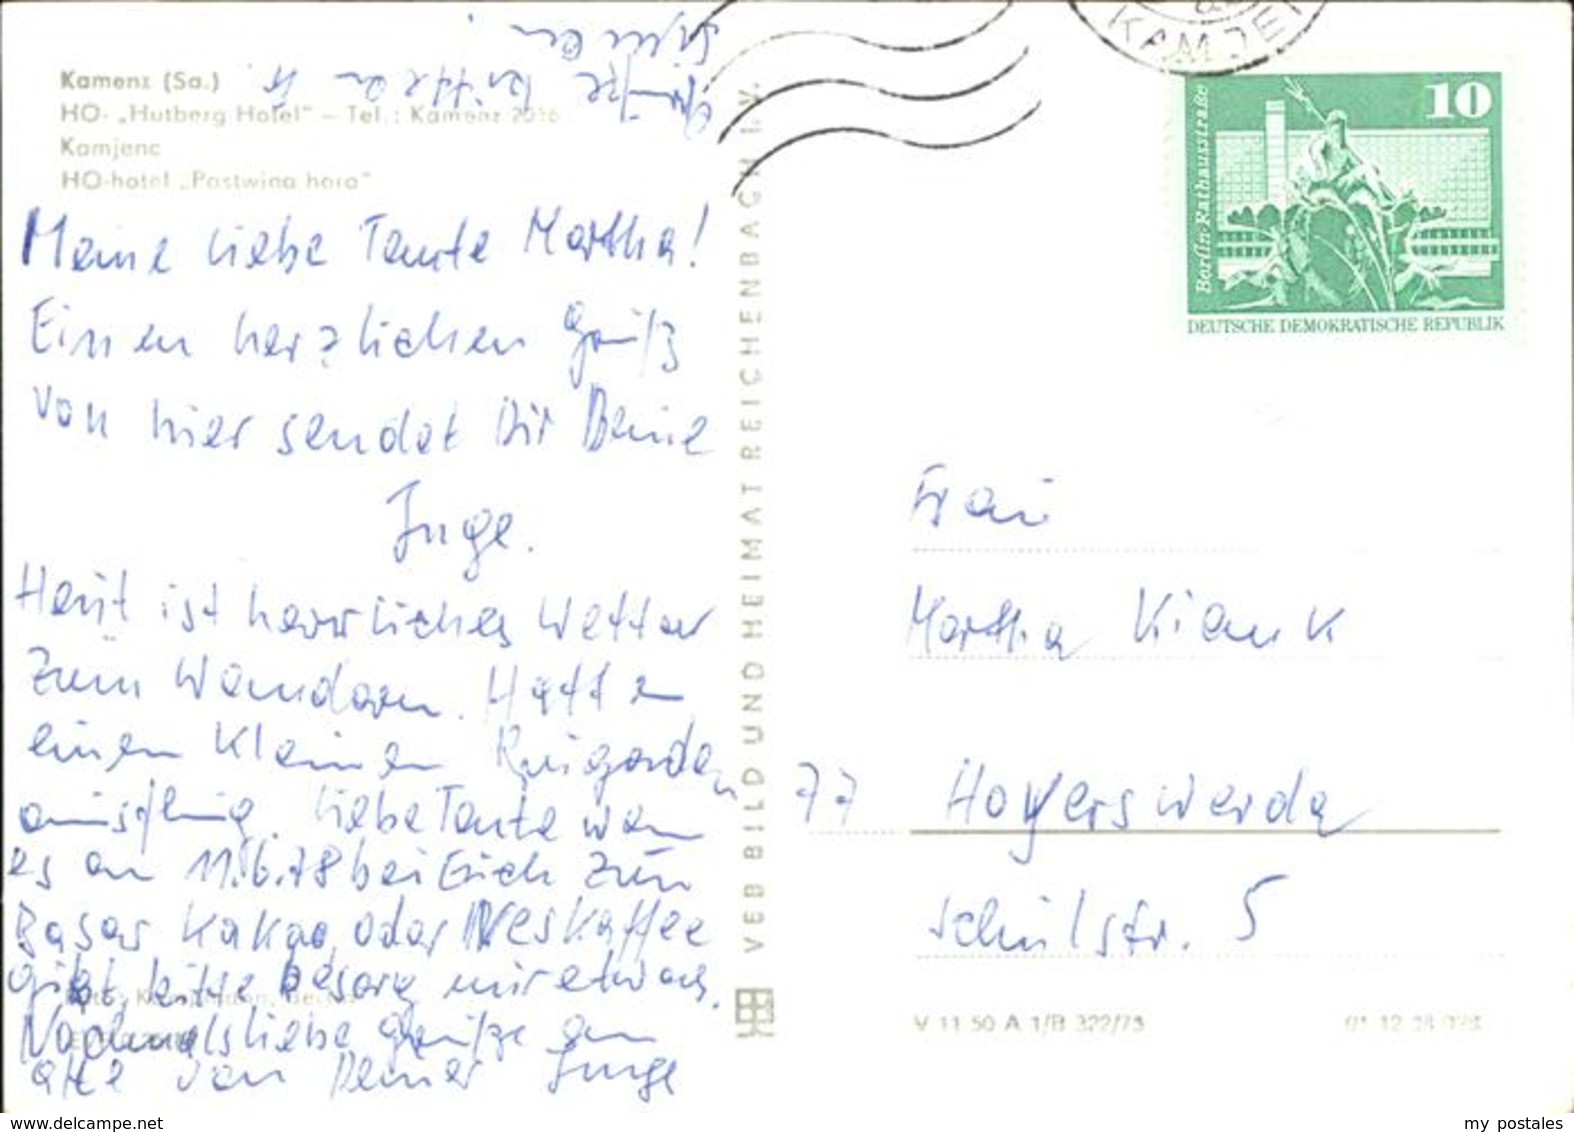 Kamenz (Sa.)
HO- „Hutberg Hotel" – Tel.: Kamenz 2016
Kamjenc
HO-hotel „Pastwina hora"
Grüße bitte an
Meine liebe Tante Martha!
Einen herzlichen Gruß
von hier sendet Dir Deine
Inge.
Heut ist herrliches Wetter
zum Wandern. Hatten
einen kleinen
ausflug. Liebe Tante wenn
es am 11.6.78 bei Erich zum
Basar Kakao oder Neskaffee
gibt, bitte besorg mir etwas.
Nochmals liebe Grüße an
alle von Deiner Inge
VEB BILD UND HEIMAT REICHENBACH I. V.
KAMJE
10
Berlin-Rathausstraße
DEUTSCHE DEMOKRATISCHE REPUBLIK
Frau
Martha Kienk
77 Hoyerswerda
Schulstr. 5
V 11 50 A 1/B 322/75 01 12 28 028
www.my-postales.com
my postales